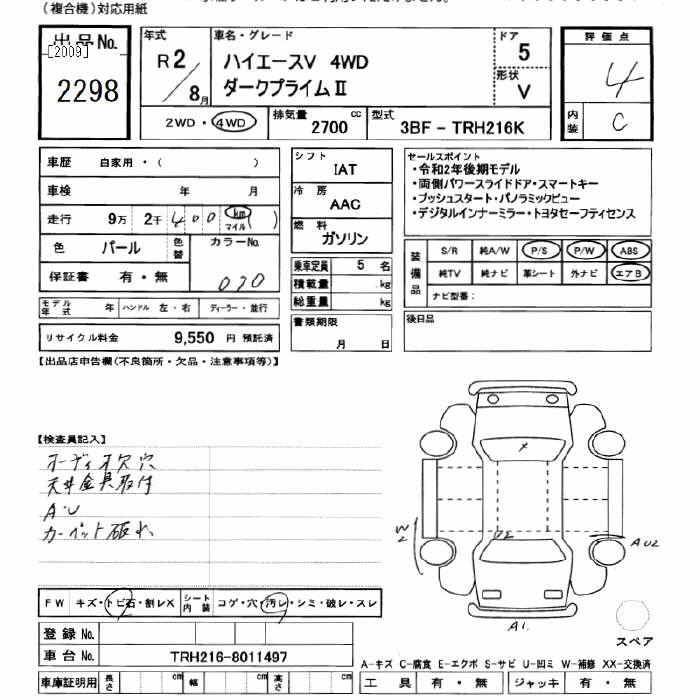 (複合機)対応用紙
出品No. [2009] 2298
年式 R2/8月
車名・グレード ハイエースV 4WD
ダークプライムⅡ
ドア 5
形状 V
評価点 4
内装 C
2WD・4WD 排気量 2700 cc 型式 3BF - TRH216K
車歴 自家用・( )
車検 年 月
走行 9万 2千 400 (km マイル)
色 パール 色替 カラーNo. 070
保証書 有・無
モデル年式 年 ハンドル 左・右 ディーラー・並行
リサイクル料金 9,550 円 預託済
シフト IAT
冷房 AAC
燃料 ガソリン
乗車定員 5 名
積載量 kg
総重量 kg
書類期限 月 日
セールスポイント
・令和2年後期モデル
・両側パワースライドドア・スマートキー
・プッシュスタート・パノラミックビュー
・デジタルインナーミラー・トヨタセーフティセンス
装備品 S/R 純A/W P/S P/W ABS
純TV 純ナビ 革シート 外ナビ エアB
ナビ型番:
後日品
【出品店申告欄(不良箇所・欠品・注意事項等)】
【検査員記入】
オーディオ欠 穴
天井金具取付
A・U
カーペット破れ
X
W2
U2
AU2
A1.
スペア
FW キズ・トビ石・割レX シート内装 コゲ・穴・汚レ・シミ・破レ・スレ
登録No.
車台No. TRH216-8011497
車庫証明用 長さ cm 幅 cm 高さ cm
A-キズ C-腐食 E-エクボ S-サビ U-凹ミ W-補修 XX-交換済
工具 有・無 ジャッキ 有・無